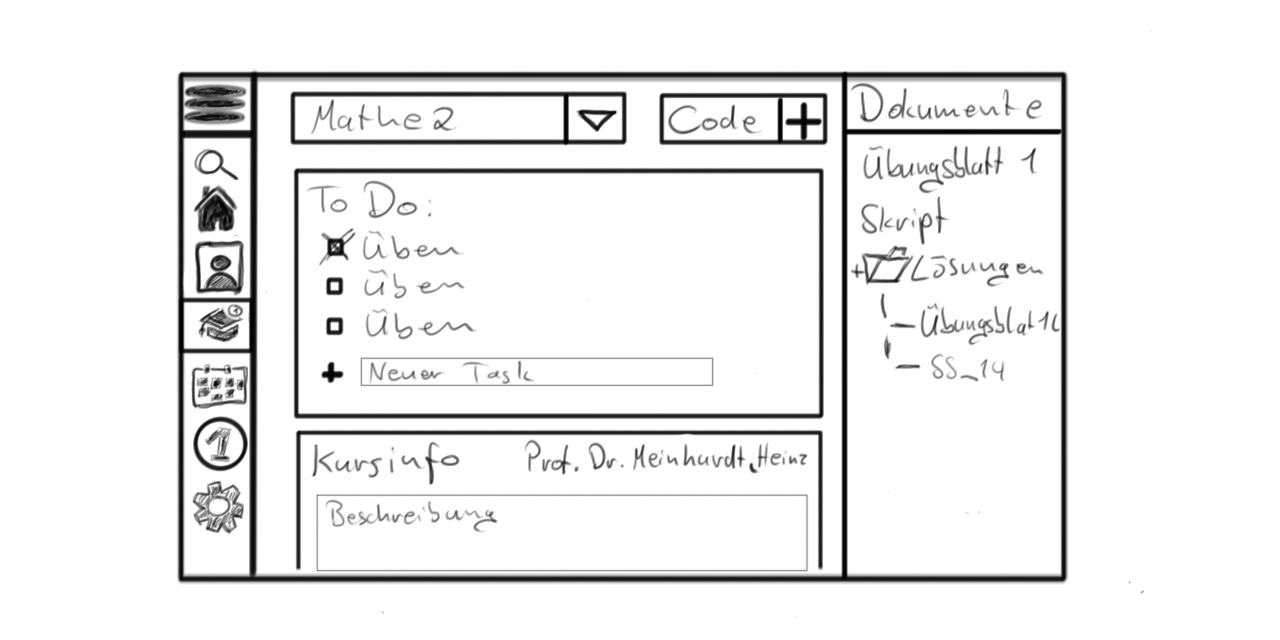 Mathe 2
Code
To Do:
Üben
Üben
Üben
Neuer Task
Kursinfo Prof. Dr. Meinhardt, Heinz
Beschreibung
1
Dokumente
Übungsblatt 1
Skript
Lösungen
SS_14